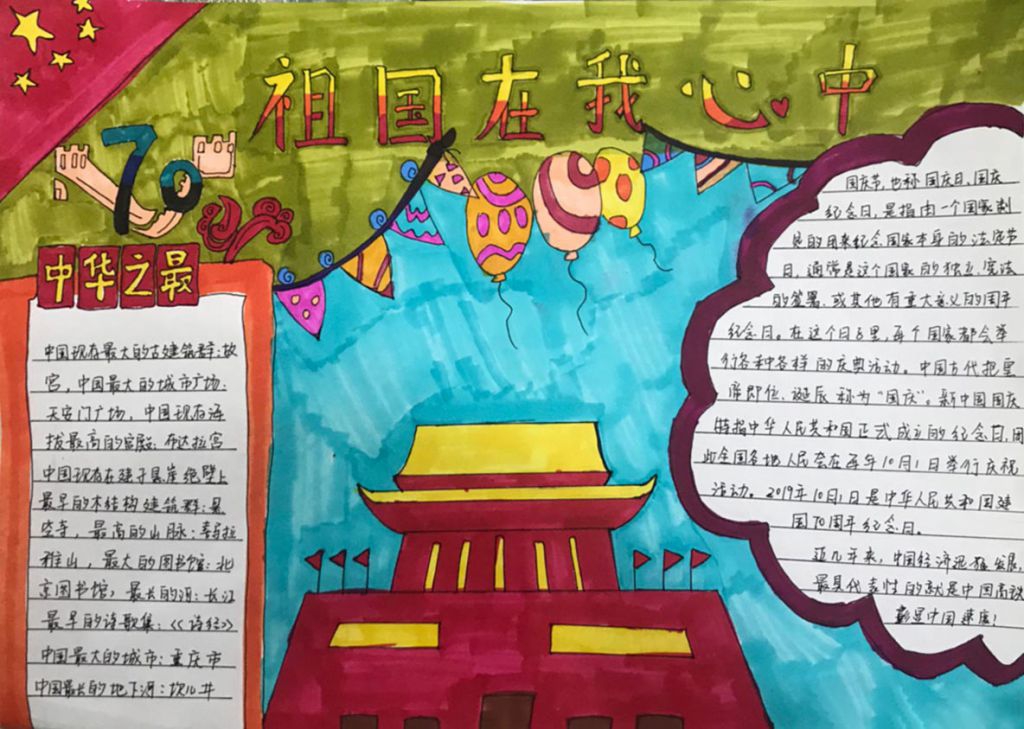 祖国在我心中
70
中华之最
中国现存最大的古建筑群:故
宫,中国最大的城市广场:
天安门广场,中国现存海
拔最高的宫殿:布达拉宫
中国现存在建于悬崖绝壁上
最早的木结构建筑群:悬
空寺,最高的山脉:喜马拉
雅山,最大的图书馆:北
京图书馆,最长的河:长江
最早的诗歌集:《诗经》
中国最大的城市:重庆市
中国最长的地下河:坎儿井
国庆节,也称国庆日、国庆
纪念日,是指由一个国家制
定的用来纪念国家本身的法定节
日,通常是这个国家的独立、宪法
的签署、或其他有重大意义的周年
纪念日。在这个日子里,每个国家都会举
行各种各样的庆典活动。中国古代把皇
帝即位、诞辰称为“国庆”。新中国国庆
特指中华人民共和国正式成立的纪念日,因
此全国各地人民会在每年10月1日举行庆祝
活动。2019年10月1日是中华人民共和国建
国70周年纪念日。
近几年来,中国经济迅猛发展,
最具代表性的就是中国高铁
彰显中国速度!